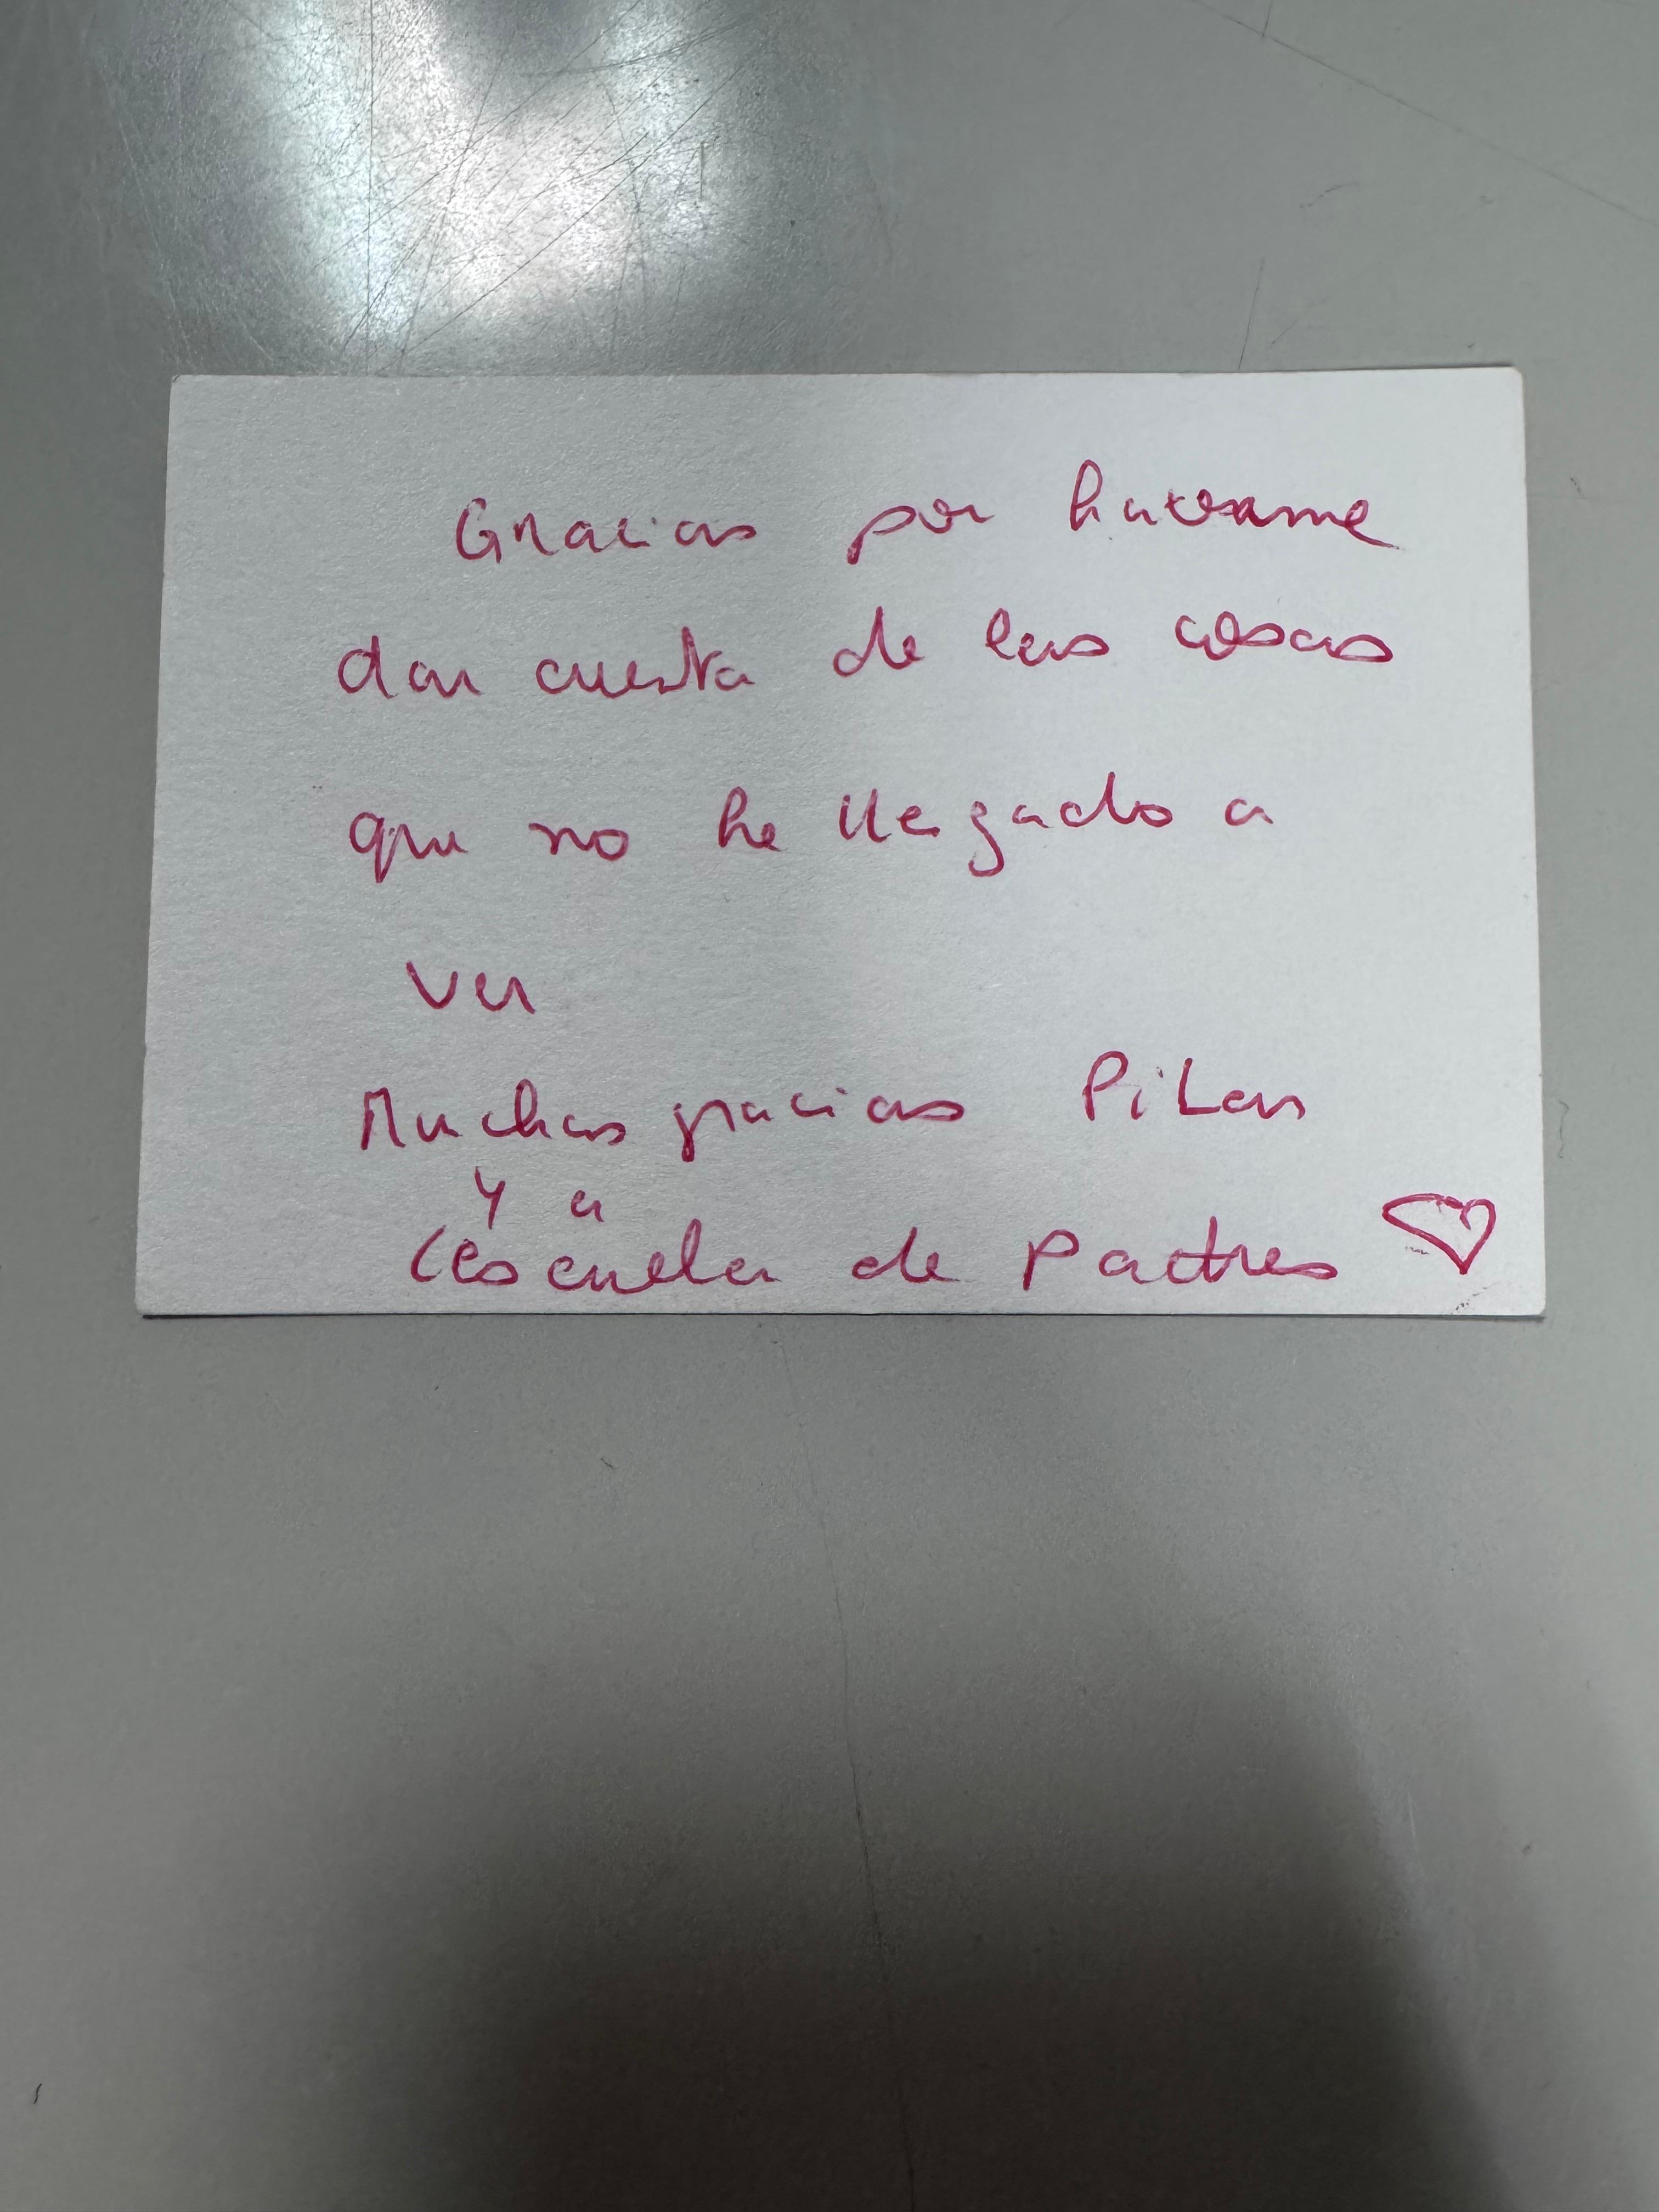 Gracias por hacerme
dar cuenta de las cosas
que no he llegado a
ver
Muchas gracias Pilar
y a
(escuela de Padres ♡